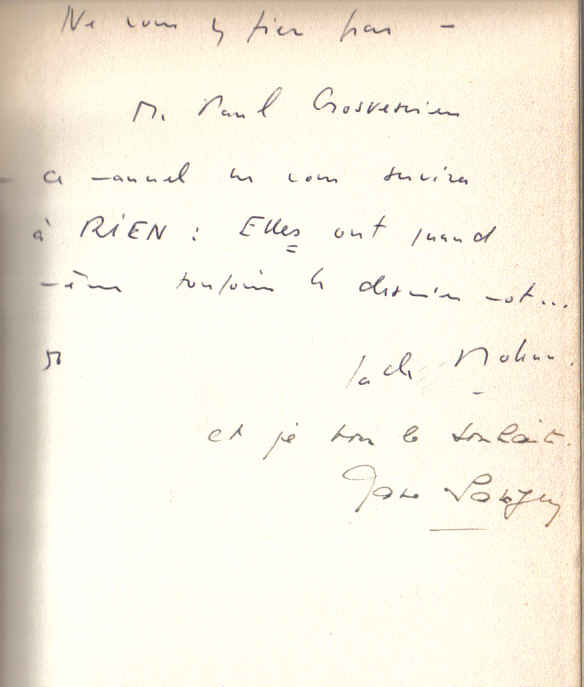 Ne vous y fiez pas -
M. Paul
- ce manuel ne vous servira
à RIEN : Elles ont quand
même toujours le dernier mot...
Jack
et je vous le souhaite.